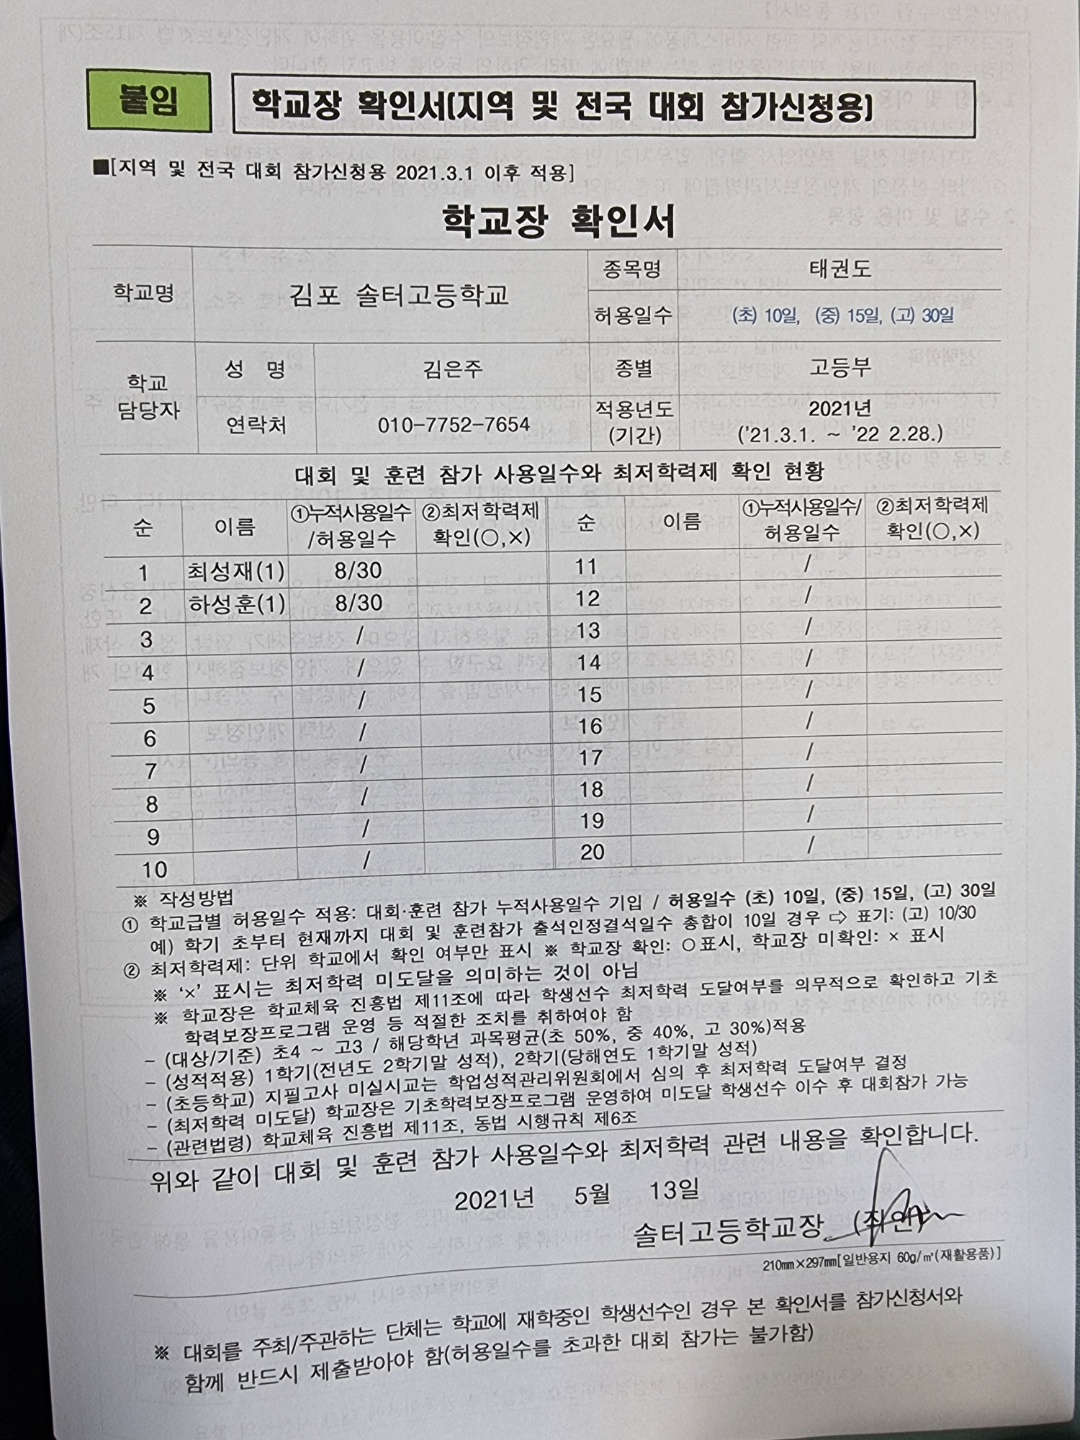 붙임
학교장 확인서(지역 및 전국 대회 참가신청용)
■[지역 및 전국 대회 참가신청용 2021.3.1 이후 적용]
학교장 확인서
학교명 김포 솔터고등학교 종목명 태권도
허용일수 (초) 10일, (중) 15일, (고) 30일
학교 담당자 성 명 김은주 종별 고등부
연락처 010-7752-7654 적용년도 (기간) 2021년 ('21.3.1. ~ '22 2.28.)
대회 및 훈련 참가 사용일수와 최저학력제 확인 현황
순 이름 ①누적사용일수 /허용일수 ②최저학력제 확인(○,×) 순 이름 ①누적사용일수/ 허용일수 ②최저학력제 확인(○,×)
1 최성재(1) 8/30 11 /
2 하성훈(1) 8/30 12 /
3 / 13 /
4 / 14 /
5 / 15 /
6 / 16 /
7 / 17 /
8 / 18 /
9 / 19 /
10 / 20 /
※ 작성방법
① 학교급별 허용일수 적용: 대회·훈련 참가 누적사용일수 기입 / 허용일수 (초) 10일, (중) 15일, (고) 30일
예) 학기 초부터 현재까지 대회 및 훈련참가 출석인정결석일수 총합이 10일 경우 ⇨ 표기: (고) 10/30
② 최저학력제: 단위 학교에서 확인 여부만 표시 ※ 학교장 확인: ○표시, 학교장 미확인: × 표시
※ '×' 표시는 최저학력 미도달을 의미하는 것이 아님
※ 학교장은 학교체육 진흥법 제11조에 따라 학생선수 최저학력 도달여부를 의무적으로 확인하고 기초
학력보장프로그램 운영 등 적절한 조치를 취하여야 함
- (대상/기준) 초4 ~ 고3 / 해당학년 과목평균(초 50%, 중 40%, 고 30%)적용
- (성적적용) 1학기(전년도 2학기말 성적), 2학기(당해연도 1학기말 성적)
- (초등학교) 지필고사 미실시교는 학업성적관리위원회에서 심의 후 최저학력 도달여부 결정
- (최저학력 미도달) 학교장은 기초학력보장프로그램 운영하여 미도달 학생선수 이수 후 대회참가 가능
- (관련법령) 학교체육 진흥법 제11조, 동법 시행규칙 제6조
위와 같이 대회 및 훈련 참가 사용일수와 최저학력 관련 내용을 확인합니다.
2021년 5월 13일
솔터고등학교장 (직인)
210㎜×297㎜[일반용지 60g/㎡(재활용품)]
※ 대회를 주최/주관하는 단체는 학교에 재학중인 학생선수인 경우 본 확인서를 참가신청서와
함께 반드시 제출받아야 함(허용일수를 초과한 대회 참가는 불가함)